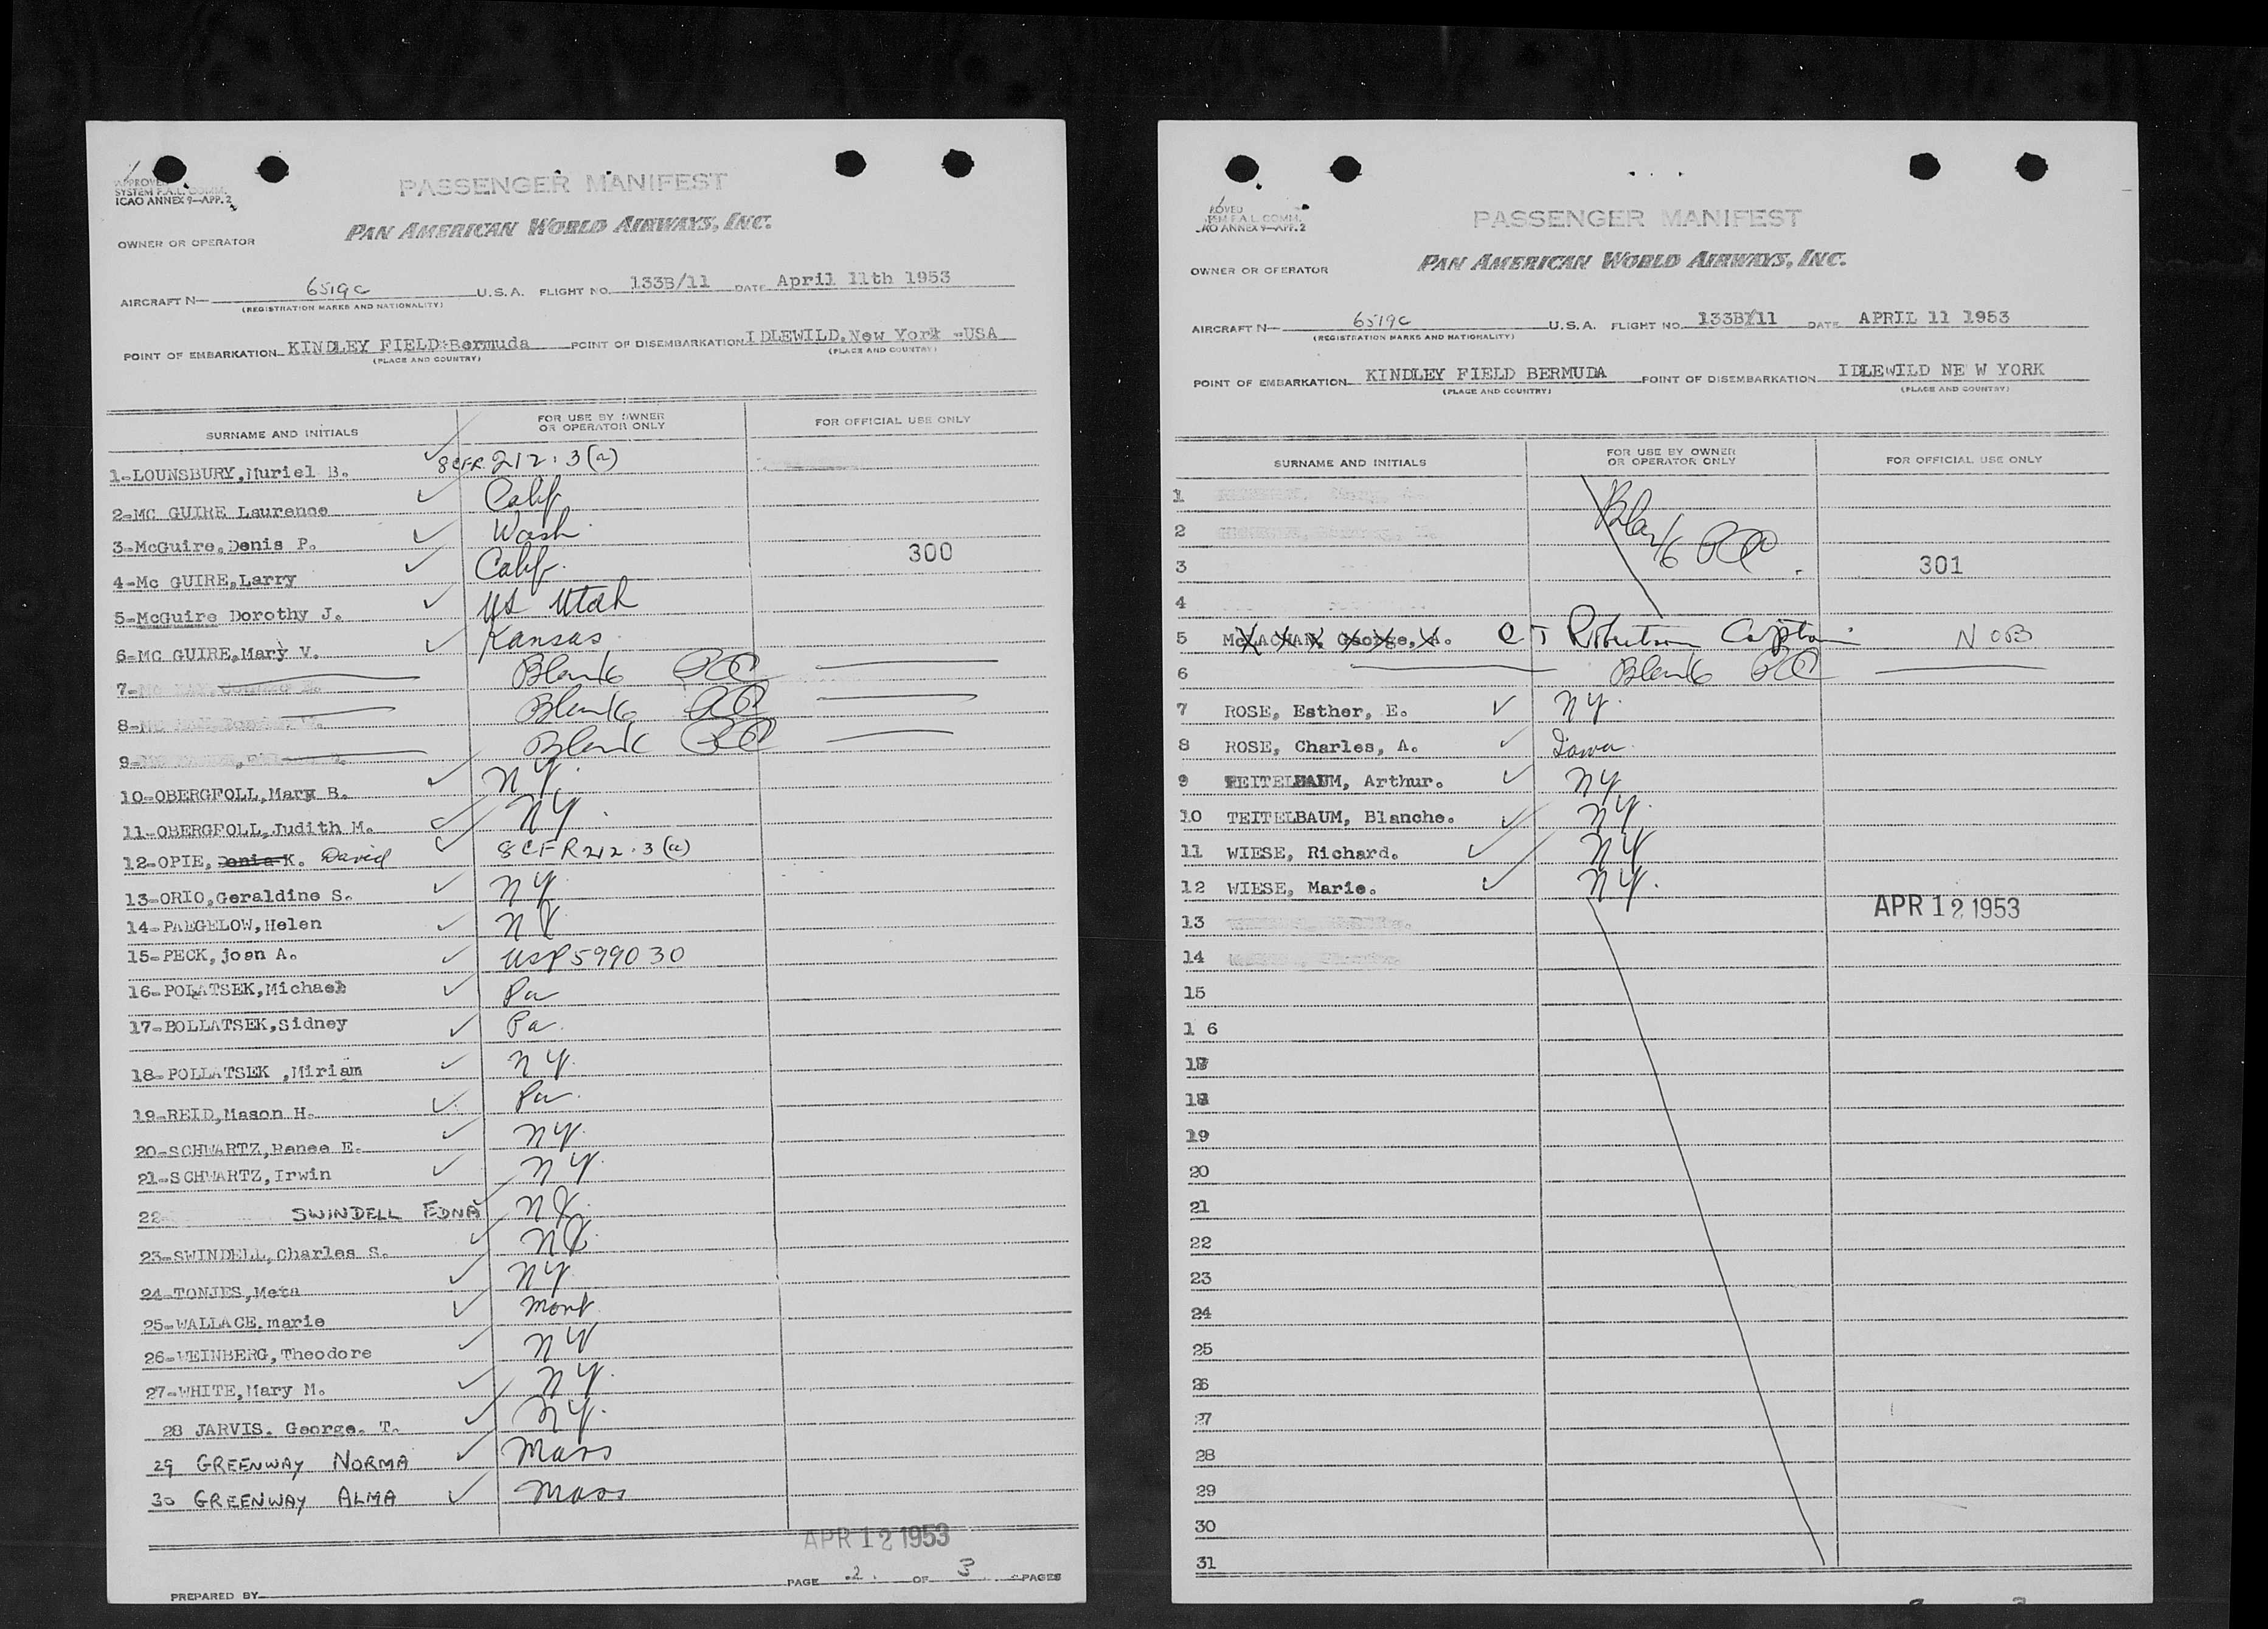 APPROVED
SYSTEM F.A.L. COMM.
ICAO ANNEX 9—APP. 2
PASSENGER MANIFEST
PAN AMERICAN WORLD AIRWAYS, INC.
OWNER OR OPERATOR
AIRCRAFT N— 6519C U.S.A. FLIGHT NO. 133B/11 DATE April 11th 1953
(REGISTRATION MARKS AND NATIONALITY)
POINT OF EMBARKATION KINDLEY FIELD-Bermuda POINT OF DISEMBARKATION IDLEWILD.New York -USA
(PLACE AND COUNTRY) (PLACE AND COUNTRY)
SURNAME AND INITIALS FOR USE BY OWNER OR OPERATOR ONLY FOR OFFICIAL USE ONLY
1-LOUNSBURY,Muriel B. 8CFR 212.3(a)
2-MC GUIRE Laurence Calif
3-McGuire,Denis P. Wash
4-Mc GUIRE,Larry Calif. 300
5-McGuire Dorothy J. US Utah
6-MC GUIRE,Mary V. Kansas
7- Blank
8- Blank
9- Blank
10-OBERGFOLL,Mary B. NY.
11-OBERGFOLL,Judith M. NY.
12-OPIE, Denis K. David 8CFR 212.3(a)
13-ORIO,Geraldine S. NY
14-PAEGELOW,Helen NY
15-PECK,joan A. USP599030
16-POLATSEK,Michael Pa
17-POLLATSEK,Sidney Pa.
18-POLLATSEK ,Miriam NY.
19-REID,Mason H. Pa.
20-SCHWARTZ,Renee E. NY.
21-SCHWARTZ,Irwin NY.
22- SWINDELL EDNA NY.
23-SWINDELL,Charles S. NY.
24-TONJES,Meta NY
25-WALLACE,marie Mont.
26-WEINBERG,Theodore NY
27-WHITE,Mary M. NY.
28 JARVIS. George. T. NY.
29 GREENWAY NORMA Mass
30 GREENWAY ALMA Mass
APR 12 1953
PREPARED BY PAGE 2. OF 3 PAGES
ROVED
TEM F.A.L. COMM.
AO ANNEX 9—APP. 2
PASSENGER MANIFEST
PAN AMERICAN WORLD AIRWAYS, INC.
OWNER OR OPERATOR
AIRCRAFT N— 6519C U.S.A. FLIGHT NO. 133B/11 DATE APRIL 11 1953
(REGISTRATION MARKS AND NATIONALITY)
POINT OF EMBARKATION KINDLEY FIELD BERMUDA POINT OF DISEMBARKATION IDLEWILD NE W YORK
(PLACE AND COUNTRY) (PLACE AND COUNTRY)
SURNAME AND INITIALS FOR USE BY OWNER OR OPERATOR ONLY FOR OFFICIAL USE ONLY
1
2 Blank
3 301
4
5 McLACHAN, George, A. Robertson Captain NOB
6 Blank
7 ROSE, Esther, E. NY.
8 ROSE, Charles, A. Iowa
9 TEITELBAUM, Arthur. NY
10 TEITELBAUM, Blanche. NY.
11 WIESE, Richard. NY
12 WIESE, Marie. NY.
APR 12 1953
13
14
15
1 6
17
18
19
20
21
22
23
24
25
26
27
28
29
30
31